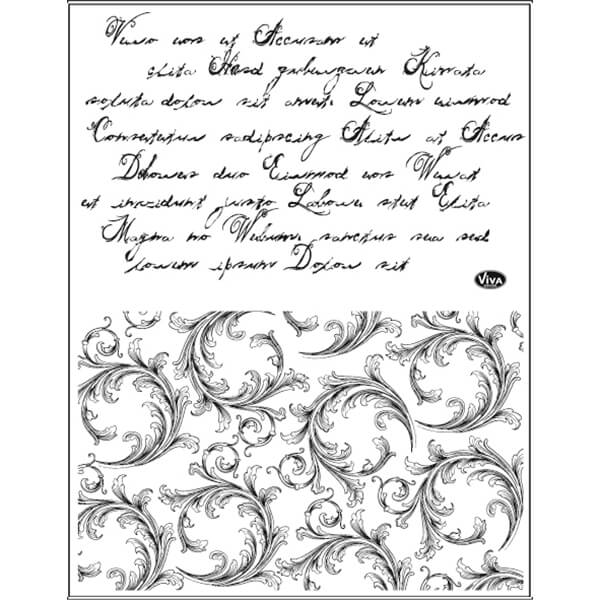 Vero eos et Accusam et
clita Kasd gubergren
soluta dolou sit amet. Lorem eiumod
Consetetur sadipscing Alitu at Accus
Dolores duo Eiumod eos
et invidunt justo Labore stet Elita
Magna no sanctus sea sed
lowem ipsum Dolou sit
VIVA